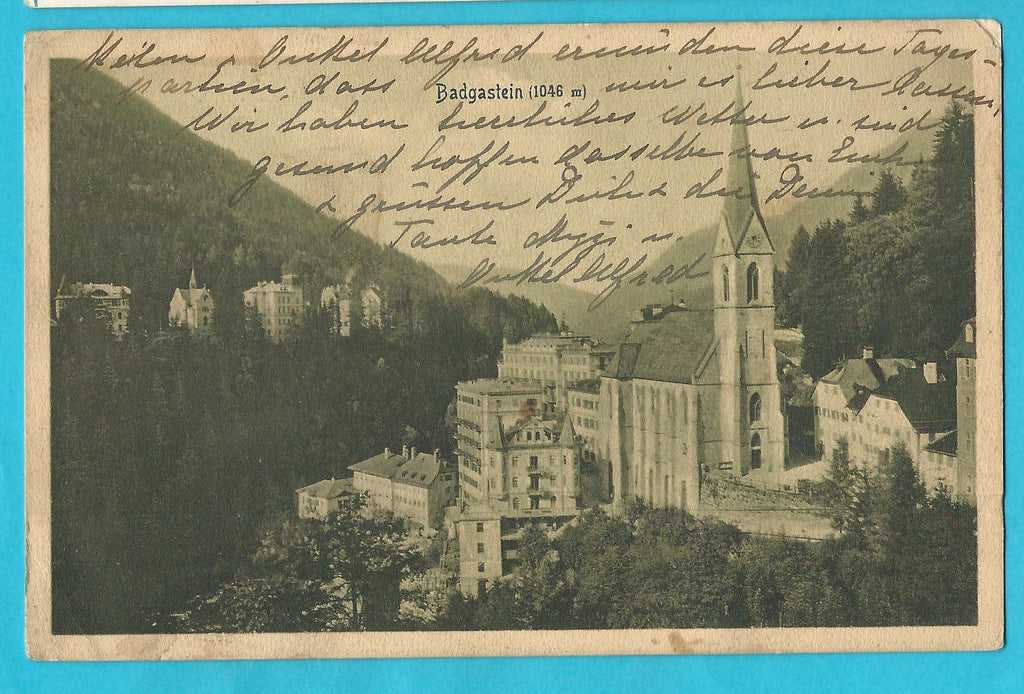 Onkel Alfred ermüden diese Tages
partien, dass mir es lieber lassen,
Badgastein (1046 m)
Wir haben herrliches Wetter u. sind
gesund hoffen dasselbe von Euch
& grüssen Dich & die Deinen
Tante Mizzi u.
Onkel Alfred